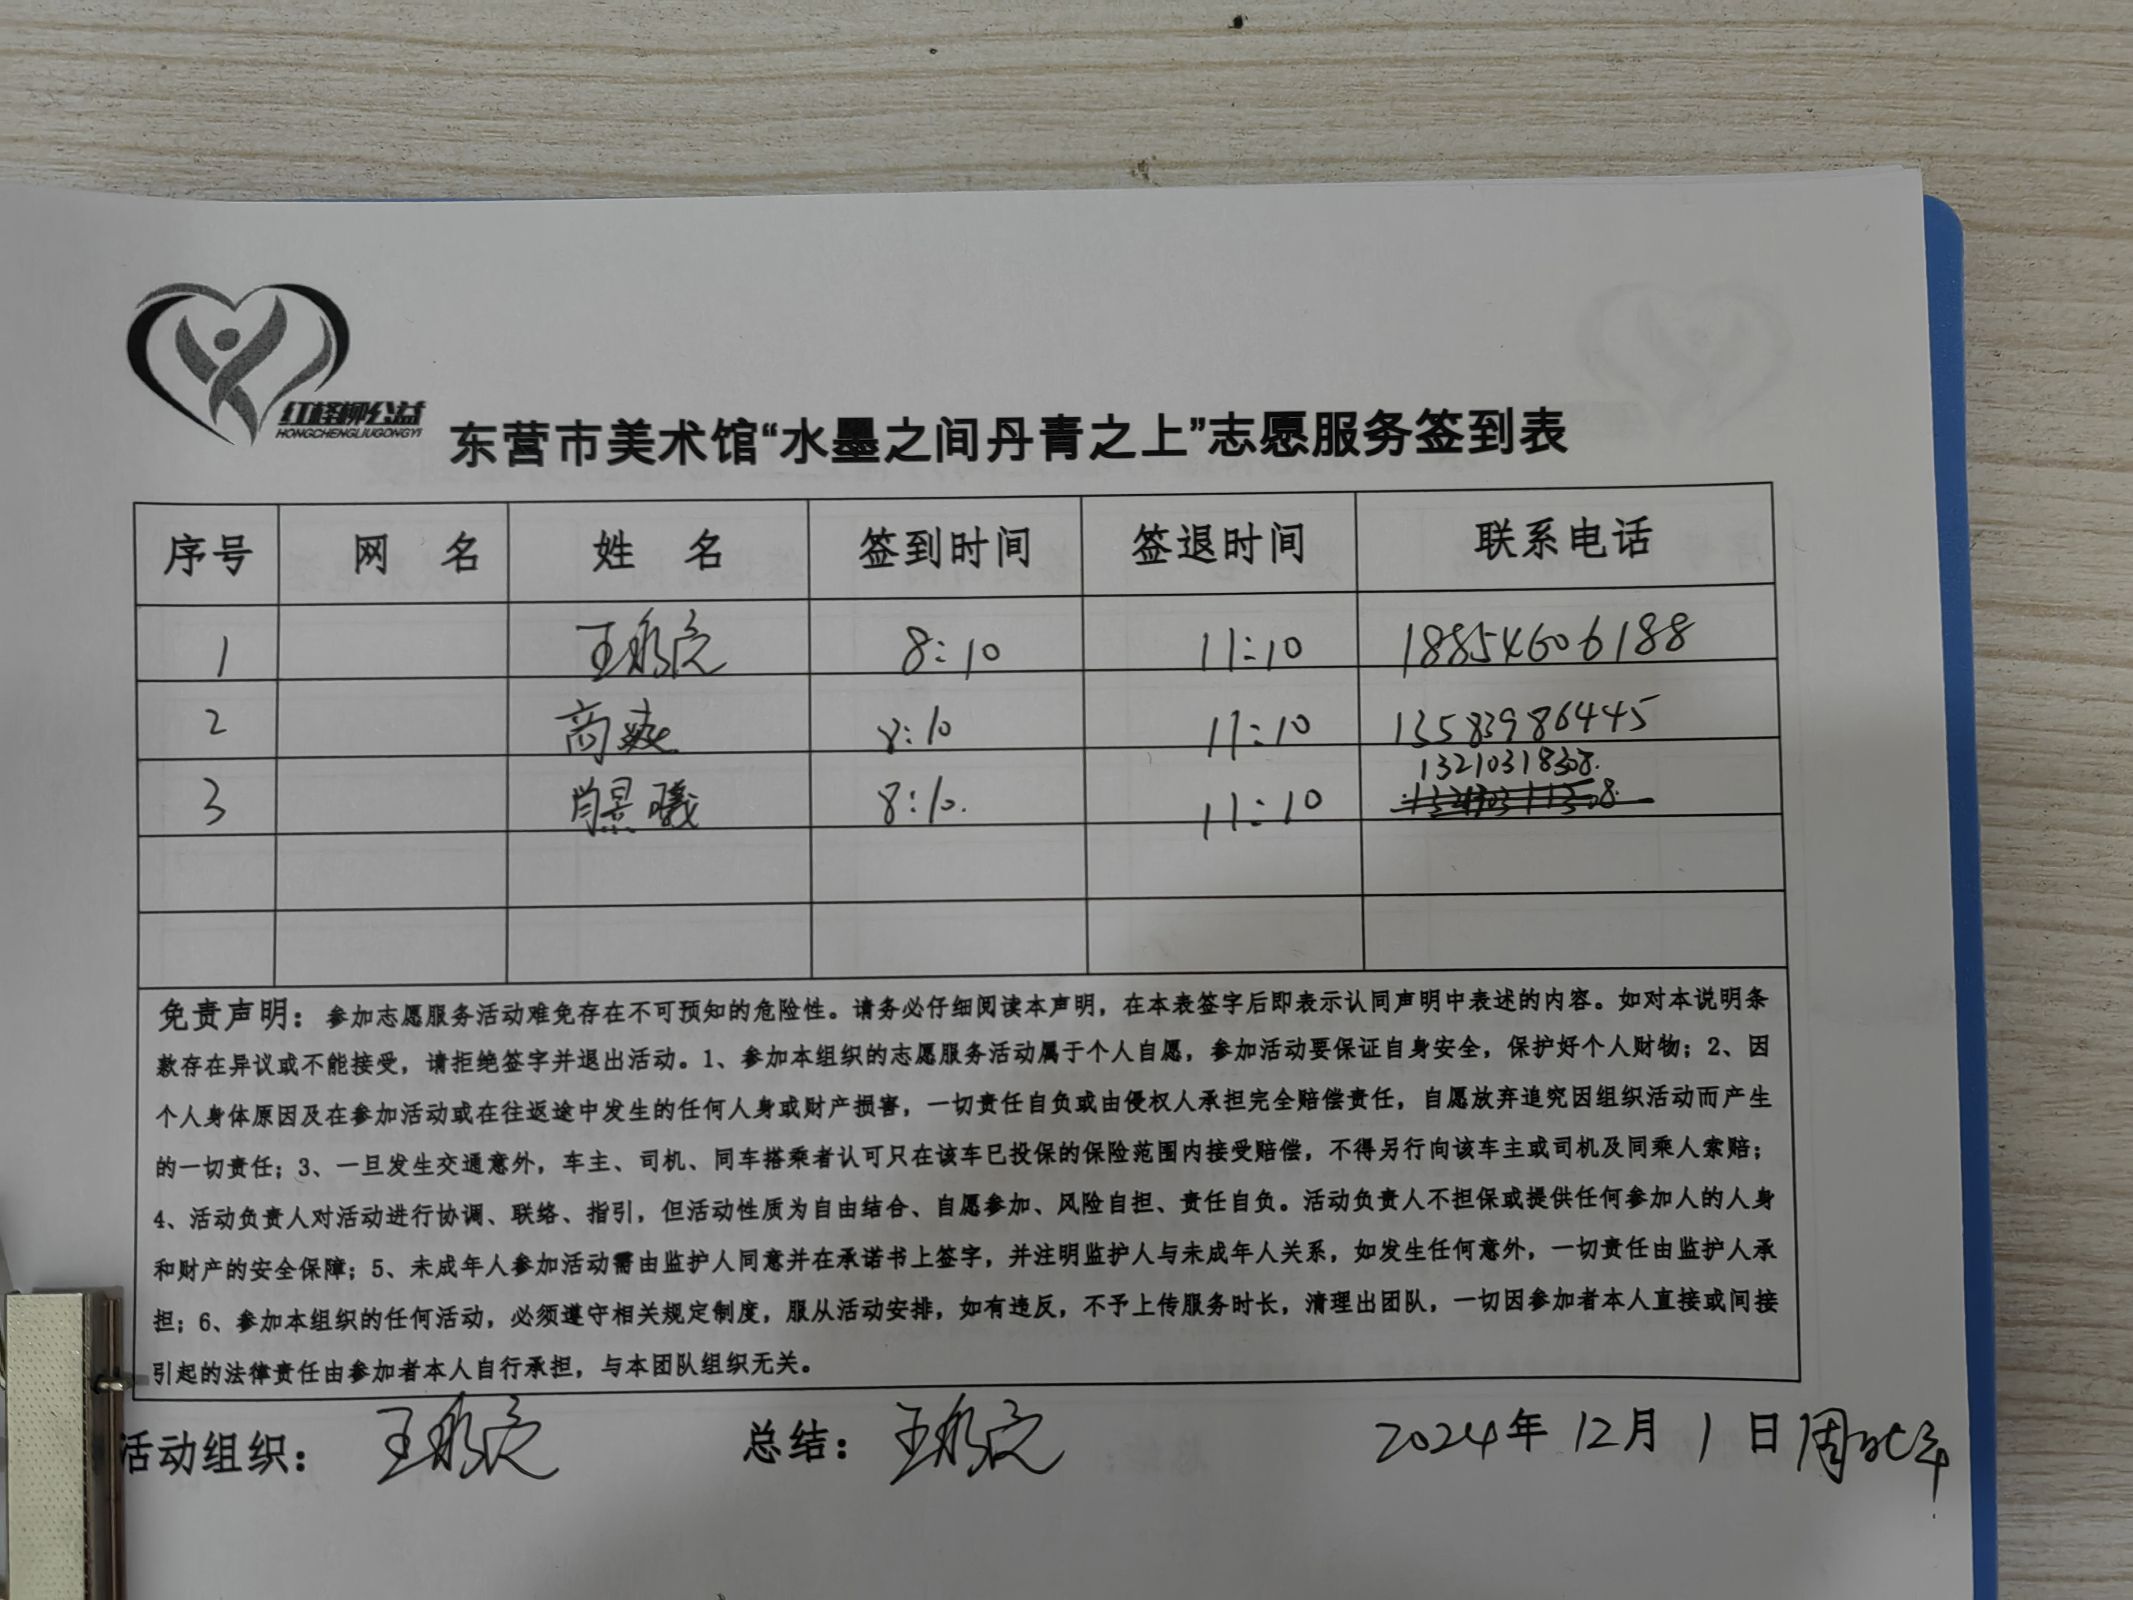 红柽柳公益
HONGCHENGLIUGONGYI
东营市美术馆“水墨之间丹青之上”志愿服务签到表
序号 网 名 姓 名 签到时间 签退时间 联系电话
1 王 8:10 11:10 18854606188
2 商爽 8:10 11:10 13583986445
13210318308.
3 肖景曦 8:10. 11:10
免责声明：参加志愿服务活动难免存在不可预知的危险性。请务必仔细阅读本声明，在本表签字后即表示认同声明中表述的内容。如对本说明条
款存在异议或不能接受，请拒绝签字并退出活动。1、参加本组织的志愿服务活动属于个人自愿，参加活动要保证自身安全，保护好个人财物；2、因
个人身体原因及在参加活动或在往返途中发生的任何人身或财产损害，一切责任自负或由侵权人承担完全赔偿责任，自愿放弃追究因组织活动而产生
的一切责任；3、一旦发生交通意外，车主、司机、同车搭乘者认可只在该车已投保的保险范围内接受赔偿，不得另行向该车主或司机及同乘人索赔；
4、活动负责人对活动进行协调、联络、指引，但活动性质为自由结合、自愿参加、风险自担、责任自负。活动负责人不担保或提供任何参加人的人身
和财产的安全保障；5、未成年人参加活动需由监护人同意并在承诺书上签字，并注明监护人与未成年人关系，如发生任何意外，一切责任由监护人承
担；6、参加本组织的任何活动，必须遵守相关规定制度，服从活动安排，如有违反，不予上传服务时长，清理出团队，一切因参加者本人直接或间接
引起的法律责任由参加者本人自行承担，与本团队组织无关。
活动组织： 王 总结： 王 2024年 12月 1 日 周